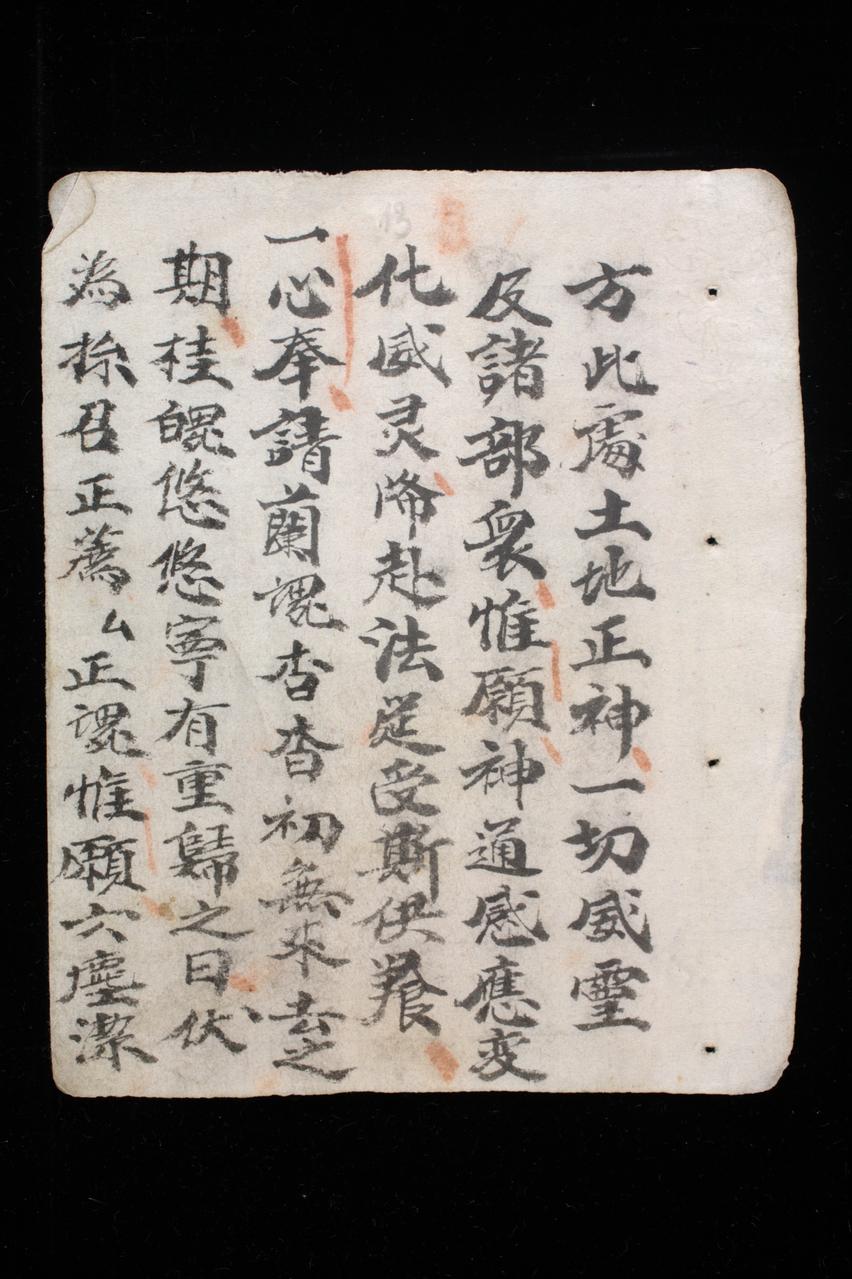 方此處土地正神一切威靈
及諸部衆惟願神通感應变
化威灵降赴法筵受斯供養
一心奉請蘭魂杳杳初無來去之
期桂魄悠悠寧有重歸之日伏
為召正薦厶正魂惟願六塵潔
13